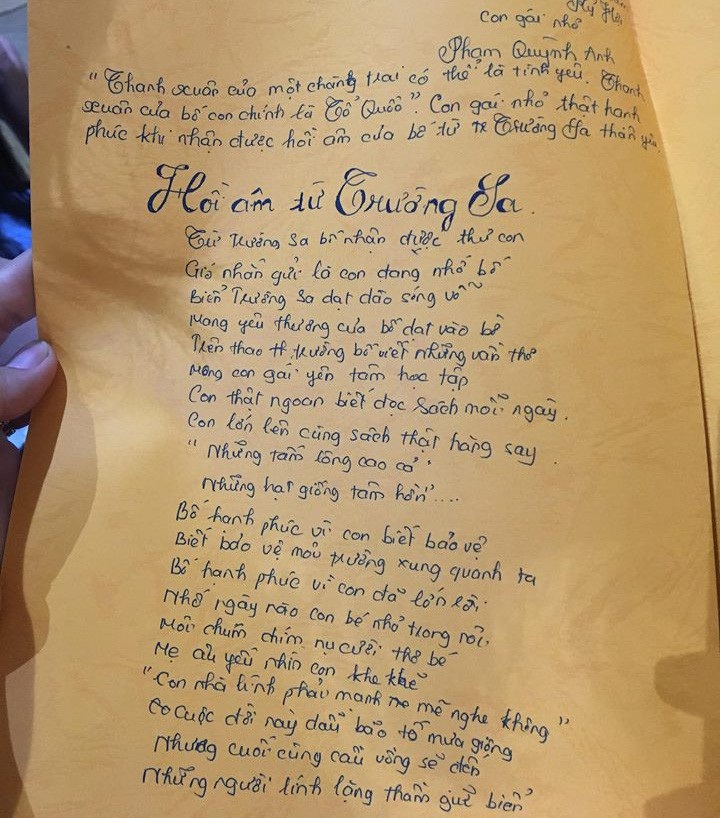 Mỹ Hà,
con gái nhỏ
Phạm Quỳnh Anh
"Thanh xuân của một chàng trai có thể là tình yêu. Thanh
xuân của bố con chính là Tổ Quốc". Con gái nhỏ thật hạnh
phúc khi nhận được hồi âm của bố từ Trường Sa thân yêu.
Hồi âm từ Trường Sa.
Từ Trường Sa bố nhận được thư con
Gió nhắn gửi là con đang nhớ bố
Biển Trường Sa dạt dào sóng vỗ
Mang yêu thương của bố dạt vào bờ
Trên thao trường bố viết những vần thơ
Mong con gái yên tâm học tập
Con thật ngoan biết đọc sách mỗi ngày.
Con lớn lên cùng sách thật hăng say.
"Những tấm lòng cao cả"
Những hạt giống tâm hồn"....
Bố hạnh phúc vì con biết bảo vệ
Biết bảo vệ môi trường xung quanh ta
Bố hạnh phúc vì con đã lớn rồi.
Nhớ ngày nào con bé nhỏ trong nôi.
Môi chúm chím nụ cười thơ bé
Mẹ âu yếm nhìn con khe khẽ
"Con nhà lính phải mạnh mẽ nghe không"
Có cuộc đời này dẫu bão tố mưa giông
Nhưng cuối cùng cầu vồng sẽ đến
Những người lính lặng thầm giữ biển